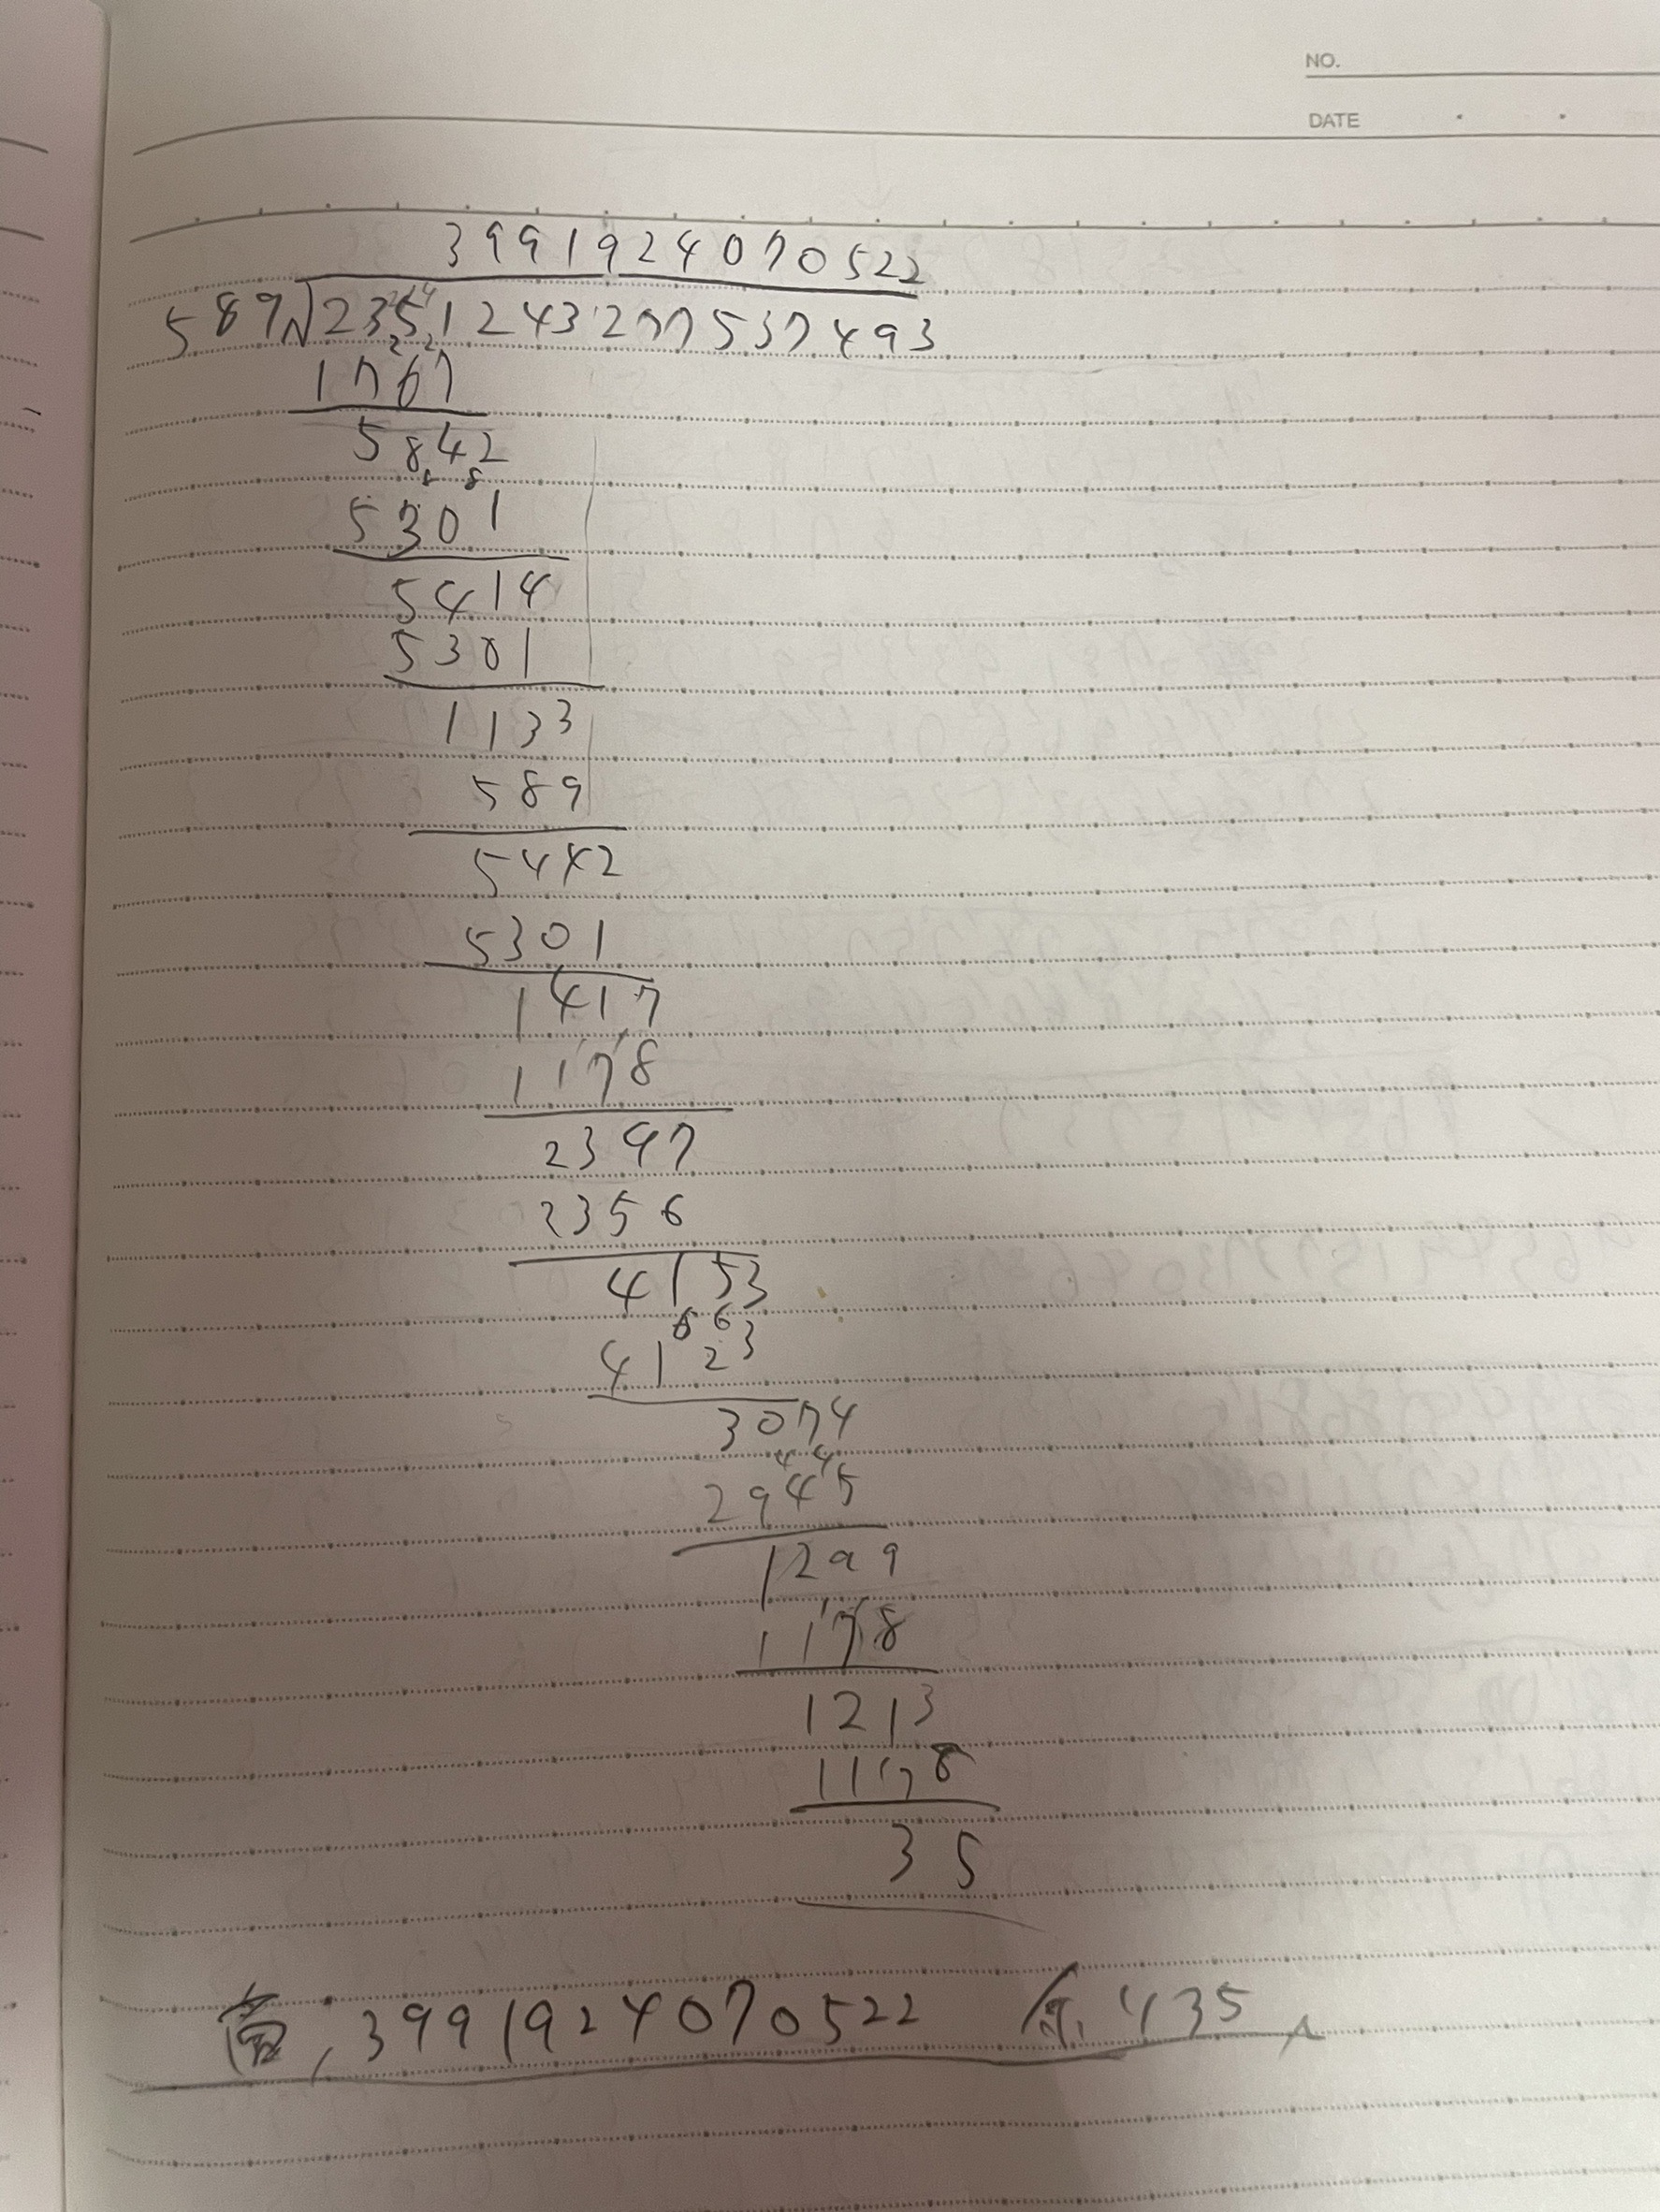 NO.
DATE
3991924070522
589 2351243277537493
1767
5842
5301
5414
5301
1133
589
5442
5301
1417
1178
2397
2356
4153
4123
3074
2945
1299
1178
1213
1178
35
商, 3991924070522 余, 435